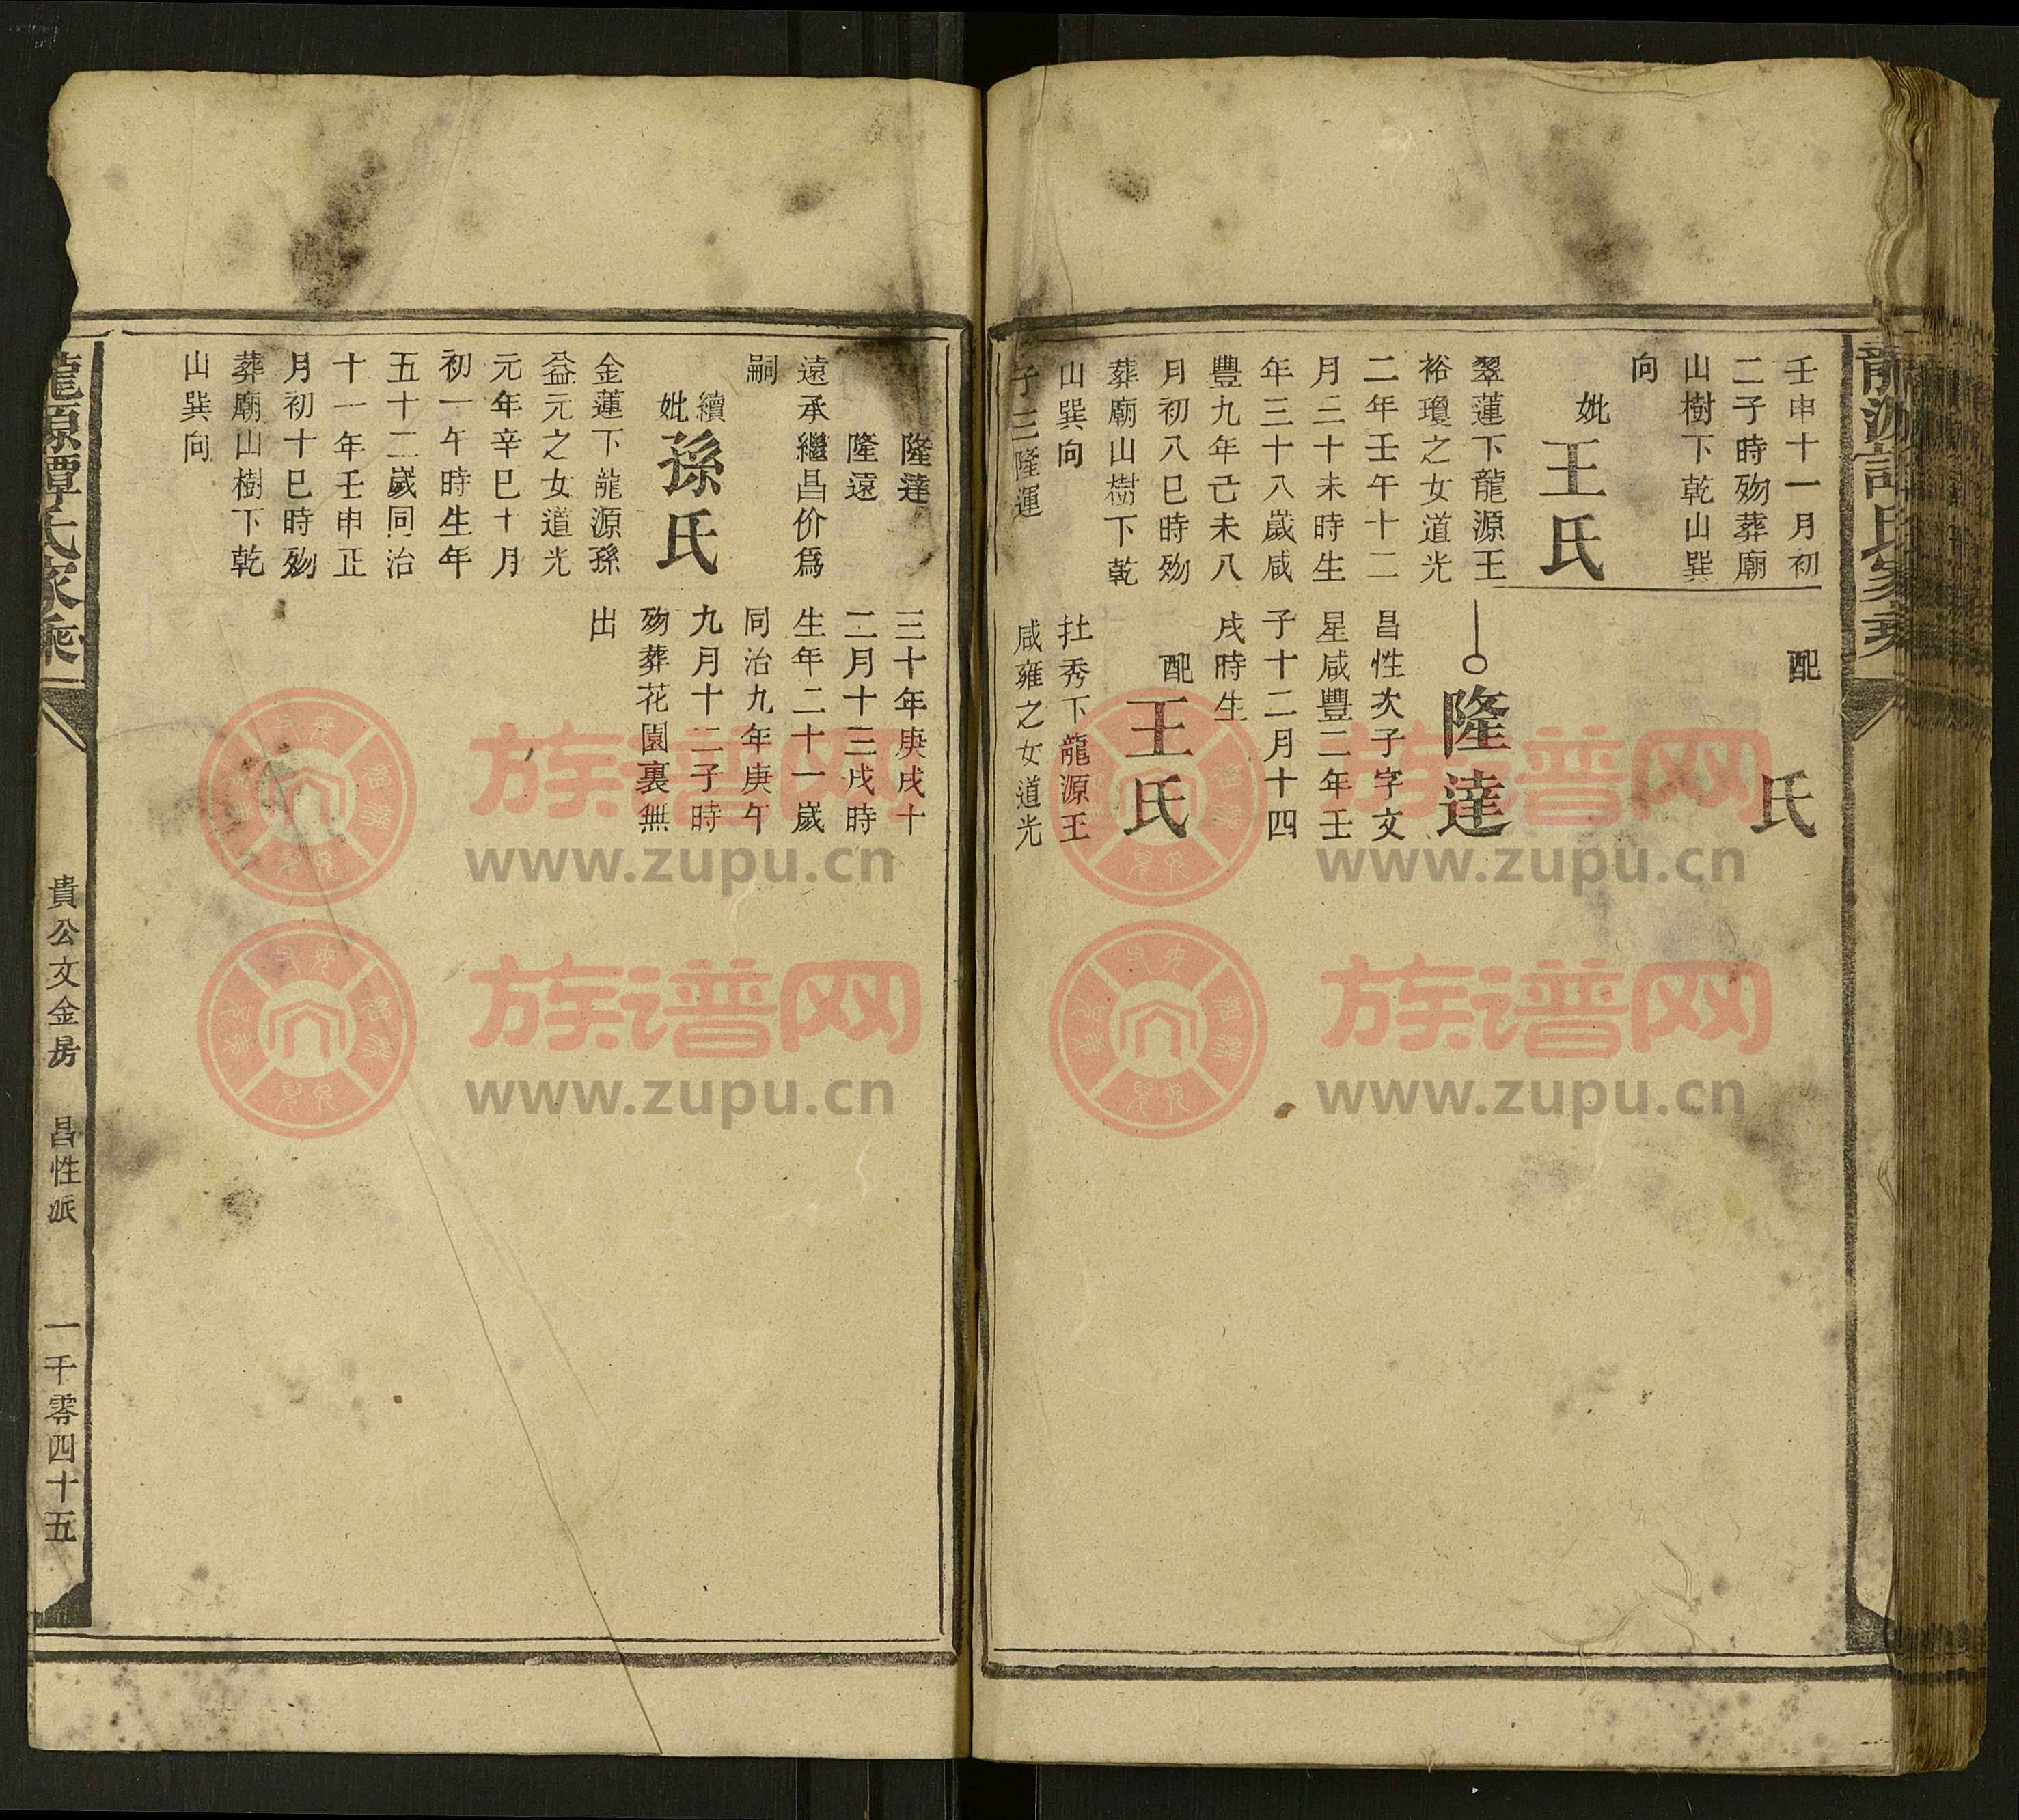 壬申十一月初
二子時歾葬廟
山樹下乾山巽
向
妣王氏
翠蓮下龍源王
裕瓊之女道光
二年壬午十二
月二十未時生
年三十八歲咸
豐九年己未八
月初八巳時歾
葬廟山樹下乾
山巽向
子三隆運
配
氏
隆達
昌性次子字文
星咸豐二年壬
子十二月十四
戌時生
配王氏
社秀下龍源王
咸雍之女道光
隆達
隆遠
遠承繼昌价為
嗣
續妣孫氏
金蓮下龍源孫
益元之女道光
元年辛巳十月
初一午時生年
五十二歲同治
十一年壬申正
月初十巳時歾
葬廟山樹下乾
山巽向
三十年庚戌十
二月十三戌時
生年二十一歲
同治九年庚午
九月十二子時
歾葬花園裏無
出
龍源譚氏家乘
貴公文金房 昌性派 一千零四十五
族谱网
www.zupu.cn
族谱网
www.zupu.cn
族谱网
www.zupu.cn
族谱网
www.zupu.cn